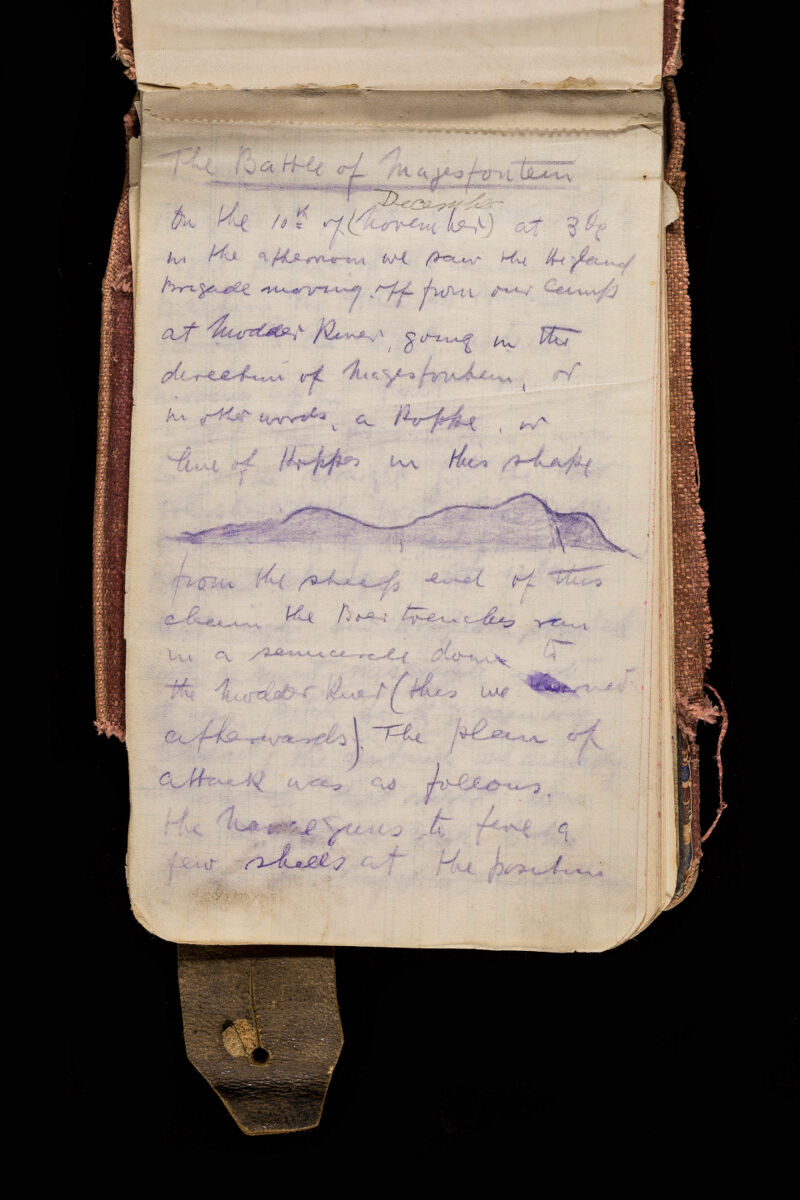 The Battle of Magesfontein
December
On the 10th of (November) at 3
in the afternoon we saw the Higland
Brigade moving off from our Camp
at Modder River, going in the
direction of Magesfontein, or
in other words, a Koppe, or
line of Koppes in this shape
from the steep end of this
chain the Boer trenches ran
in a semicircle down to
the Modder River (this we learned
afterwards). The plan of
attack was as follows.
the Naval guns to fire a
few shells at the position